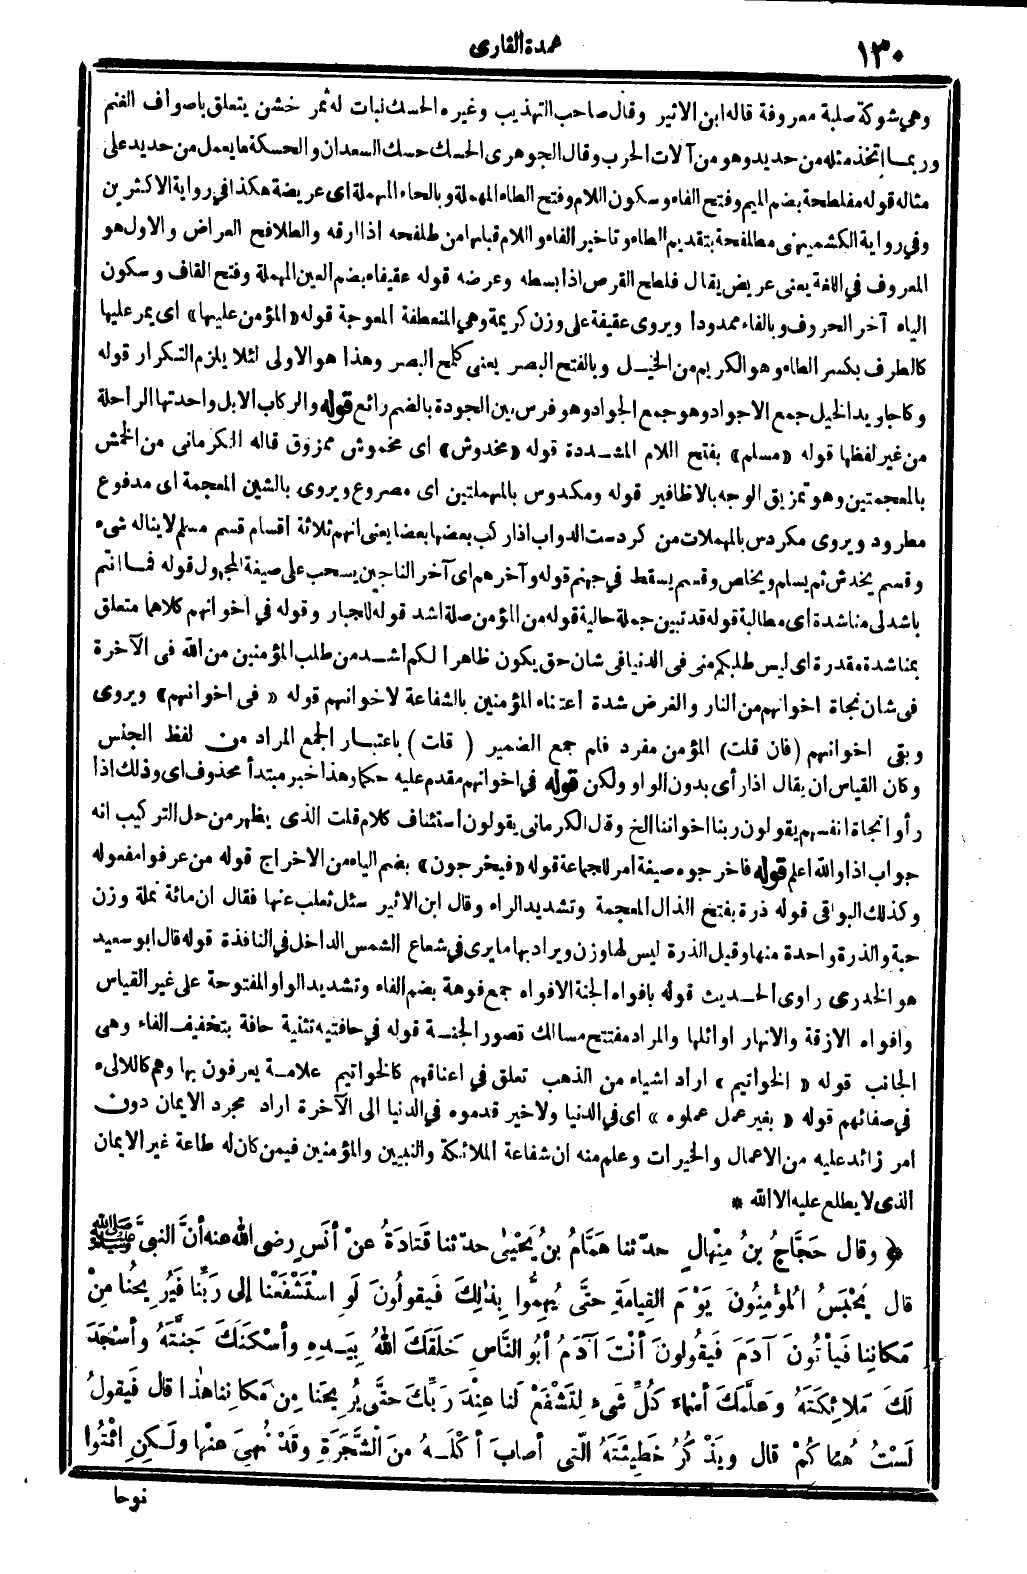 ١٣٠
عمدة القارى
وهي شوكة صلبة معروفة قاله ابن الاثير وقال صاحب التهذيب وغيره الحسك نبات له ثمر خشن يتعلق باصواف الغنم
وربما اتخذ مثله من حديد وهو من آلات الحرب وقال الجوهرى الحسك حسك السعدان والحسكة ما يعمل من حديد على
مثاله قوله مفلطحة بضم الميم وفتح الفاء وسكون اللام وفتح الطاء المهملة وبالحاء المهملة اى عريضة هكذا في رواية الاكثرين
وفي رواية الكشميهنى مطلفحة بتقديم الطاء وتاخير الفاء واللام قبلها من طلفحه اذا ارقه والطلافح العراض والاول هو
المعروف في اللغة يعنى عريض يقال فلطح القرص اذا بسطه وعرضه قوله عقيفاء بضم العين المهملة وفتح القاف وسكون
الياء آخر الحروف وبالفاء ممدودا ويروى عقيفة على وزن كريمة وهي المنعطفة المعوجة قوله «المؤمن عليها» اى يمر عليها
كالطرف بكسر الطاء وهو الكريم من الخيل وبالفتح البصر يعنى كلمح البصر وهذا هو الاولى لئلا يلزم التكرار قوله
وكاجاويد الخيل جمع الاجواد وهو جمع الجواد وهو فرس بين الجودة بالضم رائع قوله والركاب الابل واحدتها الراحلة
من غير لفظها قوله «مسلم» بفتح اللام المشددة قوله «مخدوش» اى مخموش ممزوق قاله الكرمانى من الخمش
بالمعجمتين وهو تمزيق الوجه بالاظافير قوله ومكدوس بالمهملتين اى مصروع ويروى بالشين المعجمة اى مدفوع
مطرود ويروى مكردس بالمهملات من كردست الدواب اذا ركب بعضها بعضا يعنى انهم ثلاثة اقسام قسم مسلم لا يناله شىء
وقسم يخدش ثم يسلم ويخلص وقسم يسقط في جهنم قوله وآخرهم اى آخر الناجين يسحب على صيغة المجهول قوله فما انتم
باشد لى مناشدة اى مطالبة قوله قد تبين جملة حالية قوله من المؤمن صلة اشد قوله للجبار وقوله في اخوانهم كلاهما متعلق
بمناشدة مقدرة اى ليس طلبكم منى فى الدنيا فى شان حق يكون ظاهرا لكم اشد من طلب المؤمنين من الله فى الآخرة
فى شان نجاة اخوانهم من النار والغرض شدة اعتناء المؤمنين بالشفاعة لاخوانهم قوله «فى اخوانهم» ويروى
وبقى اخوانهم (فان قلت) المؤمن مفرد فلم جمع الضمير (قلت) باعتبار الجمع المراد من لفظ الجنس
وكان القياس ان يقال اذا رأى بدون الواو ولكن قوله في اخوانهم مقدم عليه حكما وهذا خبر مبتدأ محذوف اى وذلك اذا
رأوا نجاة انفسهم يقولون ربنا اخواننا الخ وقال الكرمانى يقولون استئناف كلام قلت الذى يظهر من حل التركيب انه
جواب اذا والله اعلم قوله فاخرجوه صيغة امر للجماعة قوله «فيخرجون» بضم الياء من الاخراج قوله من عرفوا مفعوله
وكذلك البواقى قوله ذرة بفتح الذال المعجمة وتشديد الراء وقال ابن الاثير سئل ثعلب عنها فقال ان مائة نملة وزن
حبة والذرة واحدة منها وقيل الذرة ليس لها وزن ويراد بها ما يرى في شعاع الشمس الداخل في النافذة قوله قال ابو سعيد
هو الخدرى راوى الحديث قوله بافواه الجنة الافواه جمع فوهة بضم الفاء وتشديد الواو المفتوحة على غير القياس
وافواه الازقة والانهار اوائلها والمراد مفتتح مسالك قصور الجنة قوله في حافتيه تثنية حافة بتخفيف الفاء وهى
الجانب قوله «الخواتيم» اراد اشياء من الذهب تعلق في اعناقهم كالخواتيم علامة يعرفون بها وهم كاللالىء
في صفائهم قوله «بغير عمل عملوه» اى في الدنيا ولا خير قدموه في الدنيا الى الآخرة اراد مجرد الايمان دون
امر زائد عليه من الاعمال والخيرات وعلم منه ان شفاعة الملائكة والنبيين والمؤمنين فيمن كان له طاعة غير الايمان
الذى لا يطلع عليه الا الله *
﴿ وقال حَجَّاجُ بنُ مِنْهالٍ حدّثنا هَمَّامُ بنُ يَحْيَى حدّثنا قَتَادَةُ عنْ أنَسٍ رضى الله عنه أنَّ النبيَّ ﷺ
قال يُحْبَسُ المُؤْمِنُونَ يَوْمَ القِيامَةِ حتَّى يُهِمُّوا بِذٰلِكَ فَيقولُونَ لَوِ اسْتَشْفَعْنا إلى رَبِّنا فَيُرِيحُنا مِنْ
مَكانِنا فَيأْتُونَ آدَمَ فَيقُولونَ أنْتَ آدَمُ أبُو النَّاسِ خَلقَكَ اللهُ بِيَدِهِ وأسْكَنَكَ جَنَّتَهُ وأسْجَدَ
لَكَ مَلائِكَتَهُ وعَلَّمَكَ أسْماءَ كُلِّ شَىءٍ لِتَشْفَعْ لَنا عِنْدَ رَبِّكَ حتَّى يُرِيحَنا مِن مَكانِنا هٰذا قال فَيقولُ
لَسْتُ هُناكُمْ قال ويَذْكُرُ خَطِيئَتَهُ الَّتى أصابَ أكْلَهُ منَ الشَّجَرَةِ وقَدْ نُهِىَ عنْها ولَكِنِ ائْتُوا
نوحا